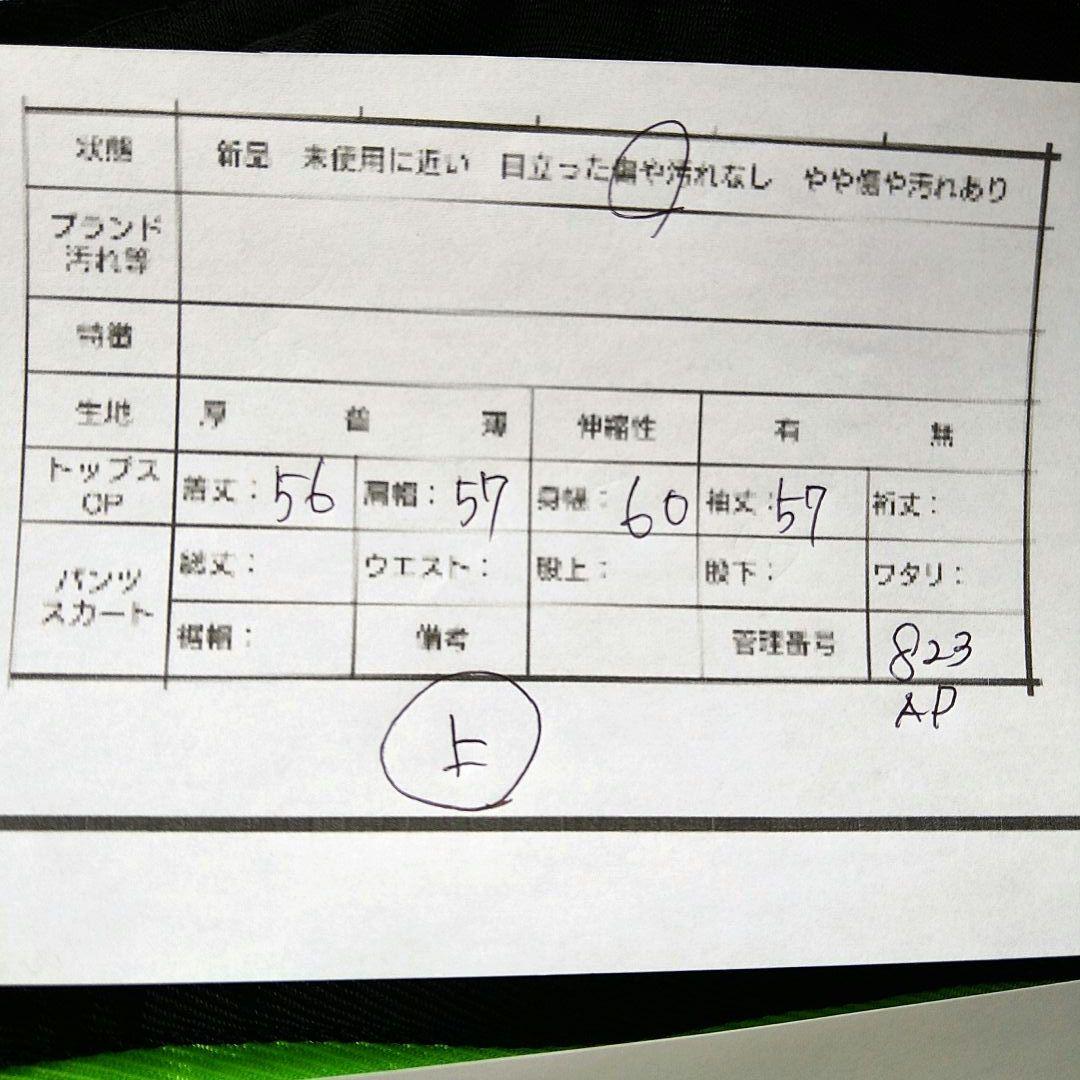 状態 新品 未使用に近い 目立った傷や汚れなし やや傷や汚れあり
ブランド
汚れ等
特徴
生地 厚 普 薄 伸縮性 有 無
トップス
OP
着丈：56 肩幅：57 身幅：60 袖丈：57 裄丈：
パンツ
スカート
総丈： ウエスト： 股上： 股下： ワタリ：
裾幅： 備考 管理番号 823
AP
上